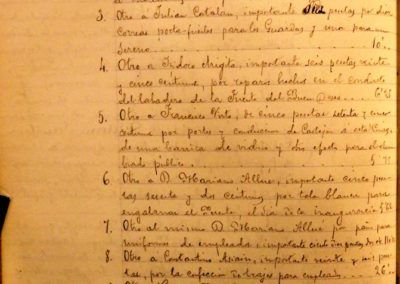 3. Otro a Julian Catalan, importante diez pesetas por dos
correas porta-fusiles para los Guardas y una para un
Sereno . . . 10 "
4. Otro a Isidoro Argita, importante seis pesetas veinte
y cinco céntimos, por reparos hechos en el conducto
del labadero de la Fuente del Buen Deseo . . . 6'25
5. Otro a Francisco Pinto, de cinco pesetas setenta y cinco
céntimos por portes y conduccion de Castejon a este
de una barrica de vidrio y dos efectos para el alum
brado publico . . . 5'75
6. Otro a D. Mariano Allué, importante cinco pese
tas sesenta y dos céntimos por tela blanca para
engalanar el Puente, el dia de la inauguracion 5'62
7. Otro al mismo D. Mariano Allué por paño para
uniformes de empleados, importante ciento
8. Otro a Constantino Marin, importante veinte y seis pese
tas, por la confeccion de trajes para empleados . . . 26 "